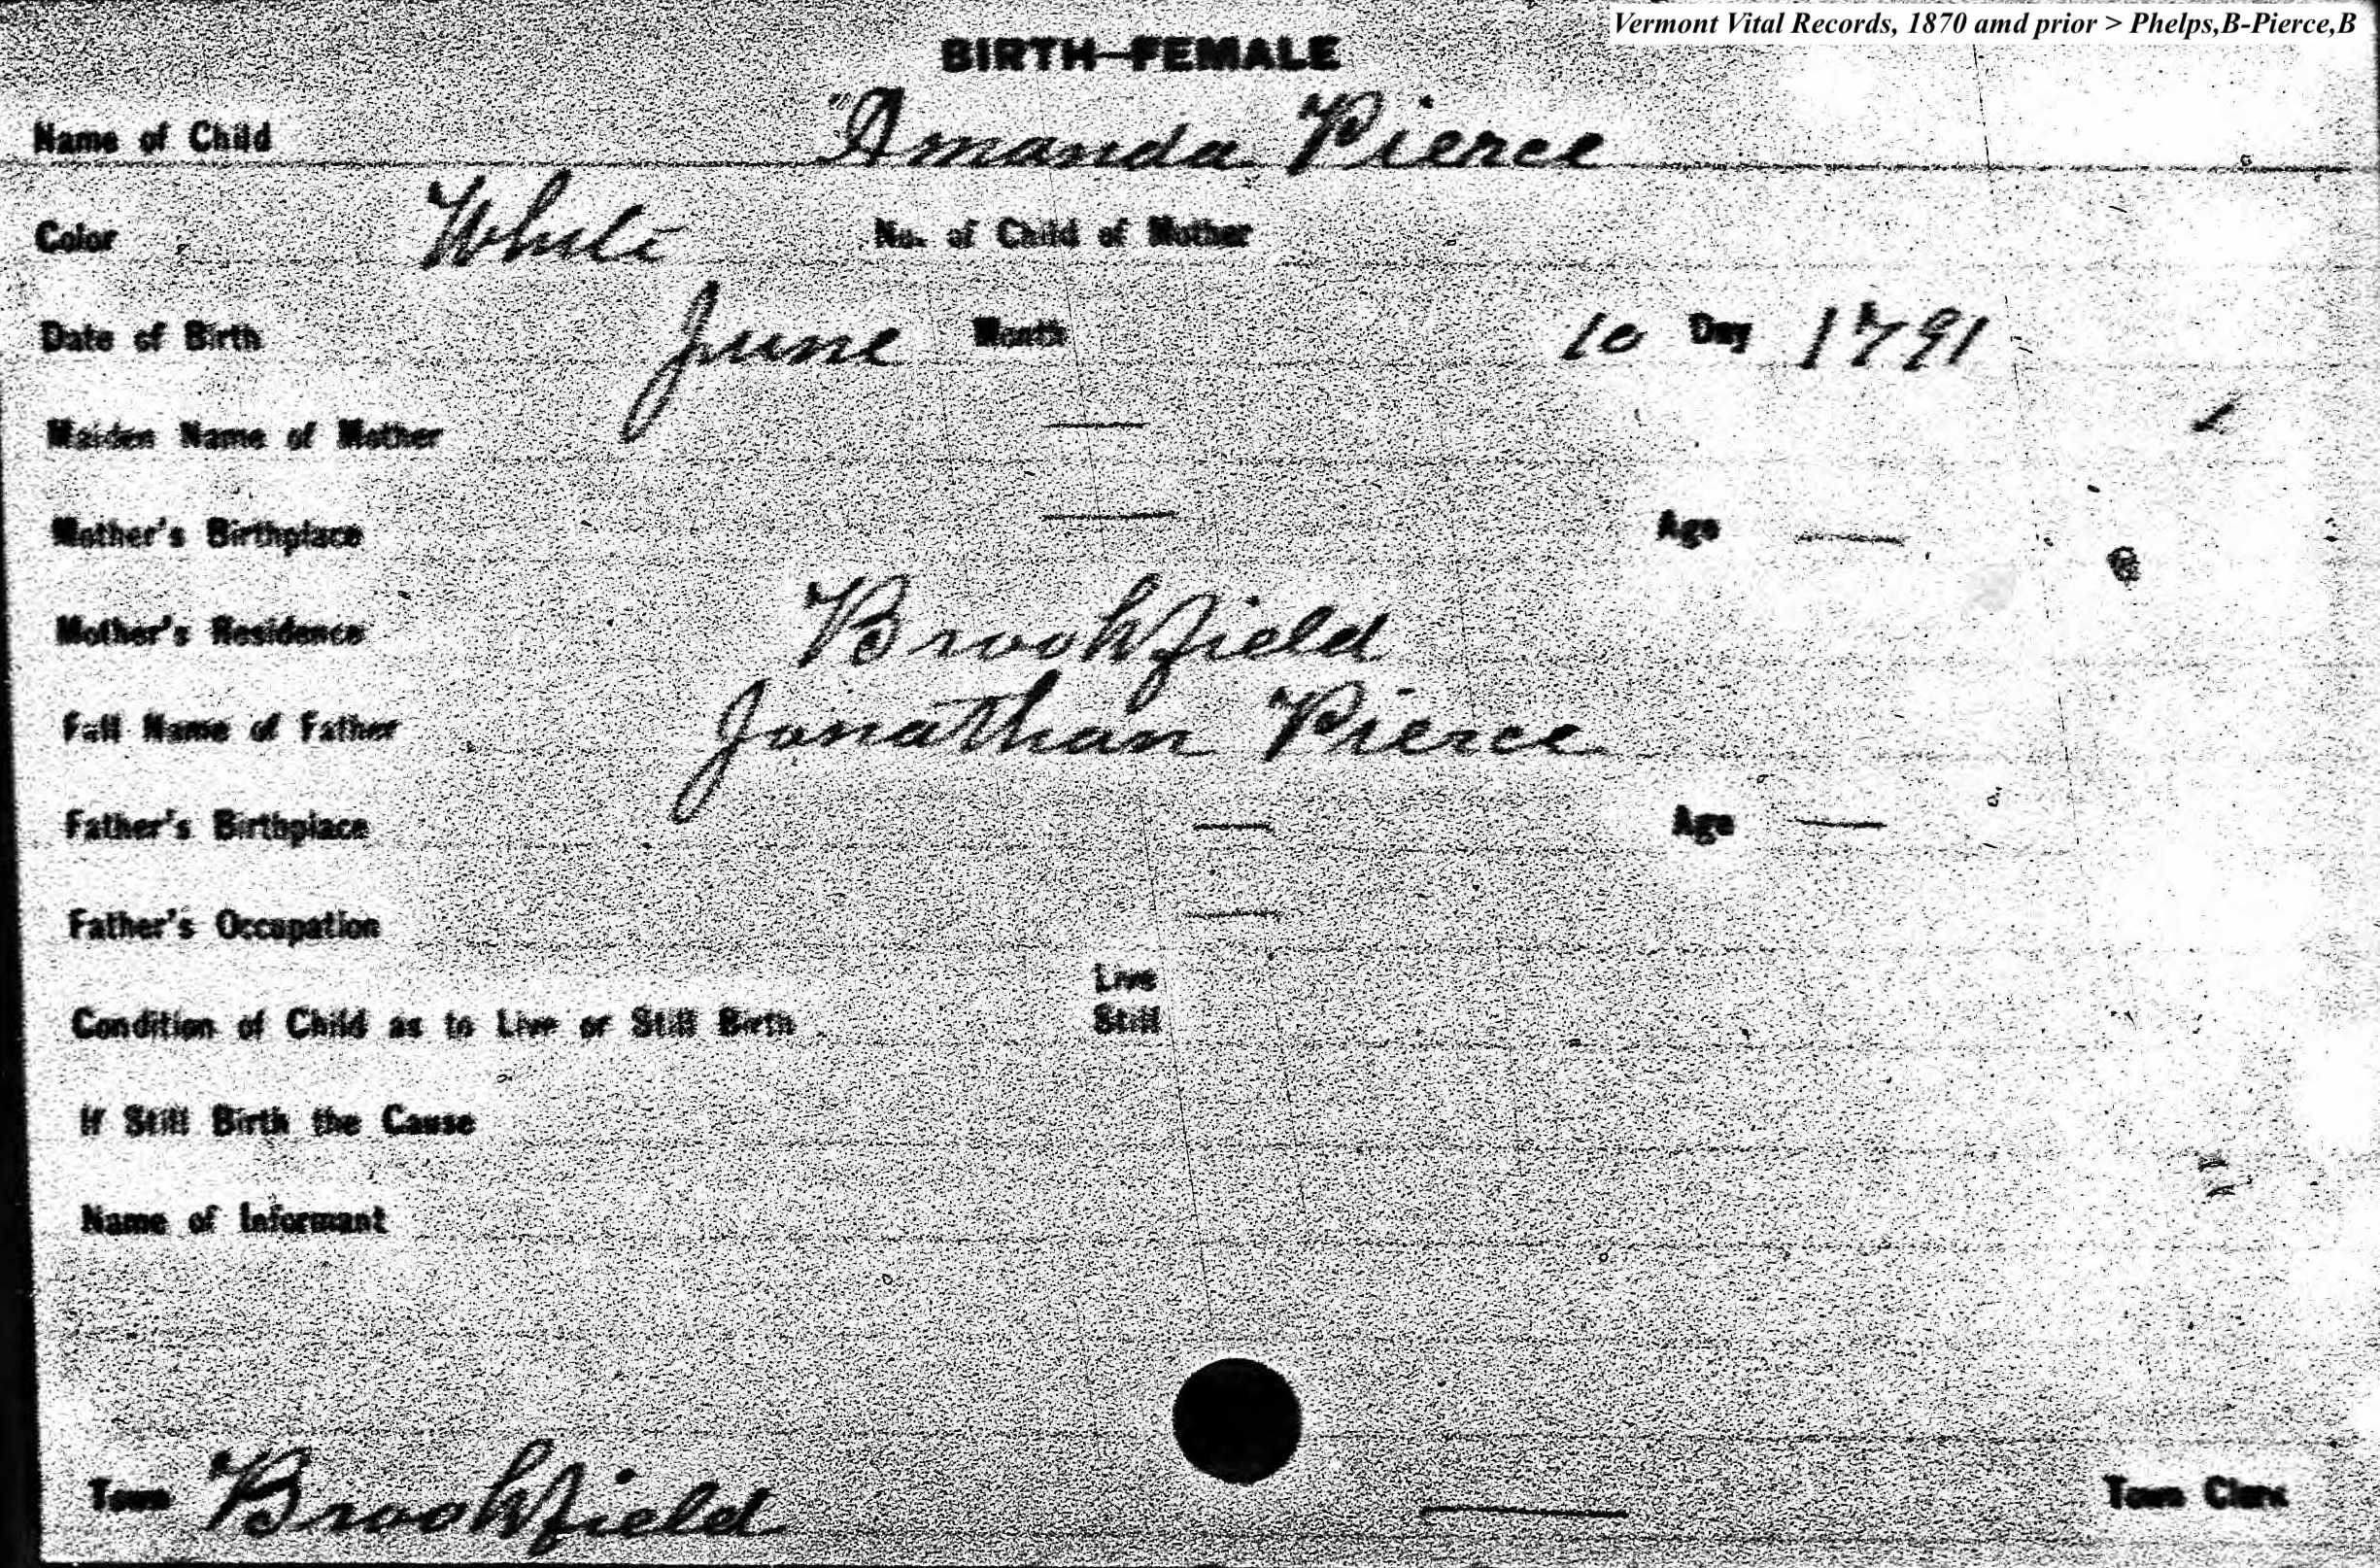 Vermont Vital Records, 1870 amd prior > Phelps,B-Pierce,B
BIRTH—FEMALE
Name of Child Amanda Pierce
Color White No. of Child of Mother
Date of Birth June Month 10 Day 1791
Maiden Name of Mother —
Mother's Birthplace — Age —
Mother's Residence Brookfield
Full Name of Father Jonathan Pierce
Father's Birthplace — Age —
Father's Occupation —
Live
Condition of Child as to Live or Still Birth Still
If Still Birth the Cause
Name of Informant
Town Brookfield — Town Clerk